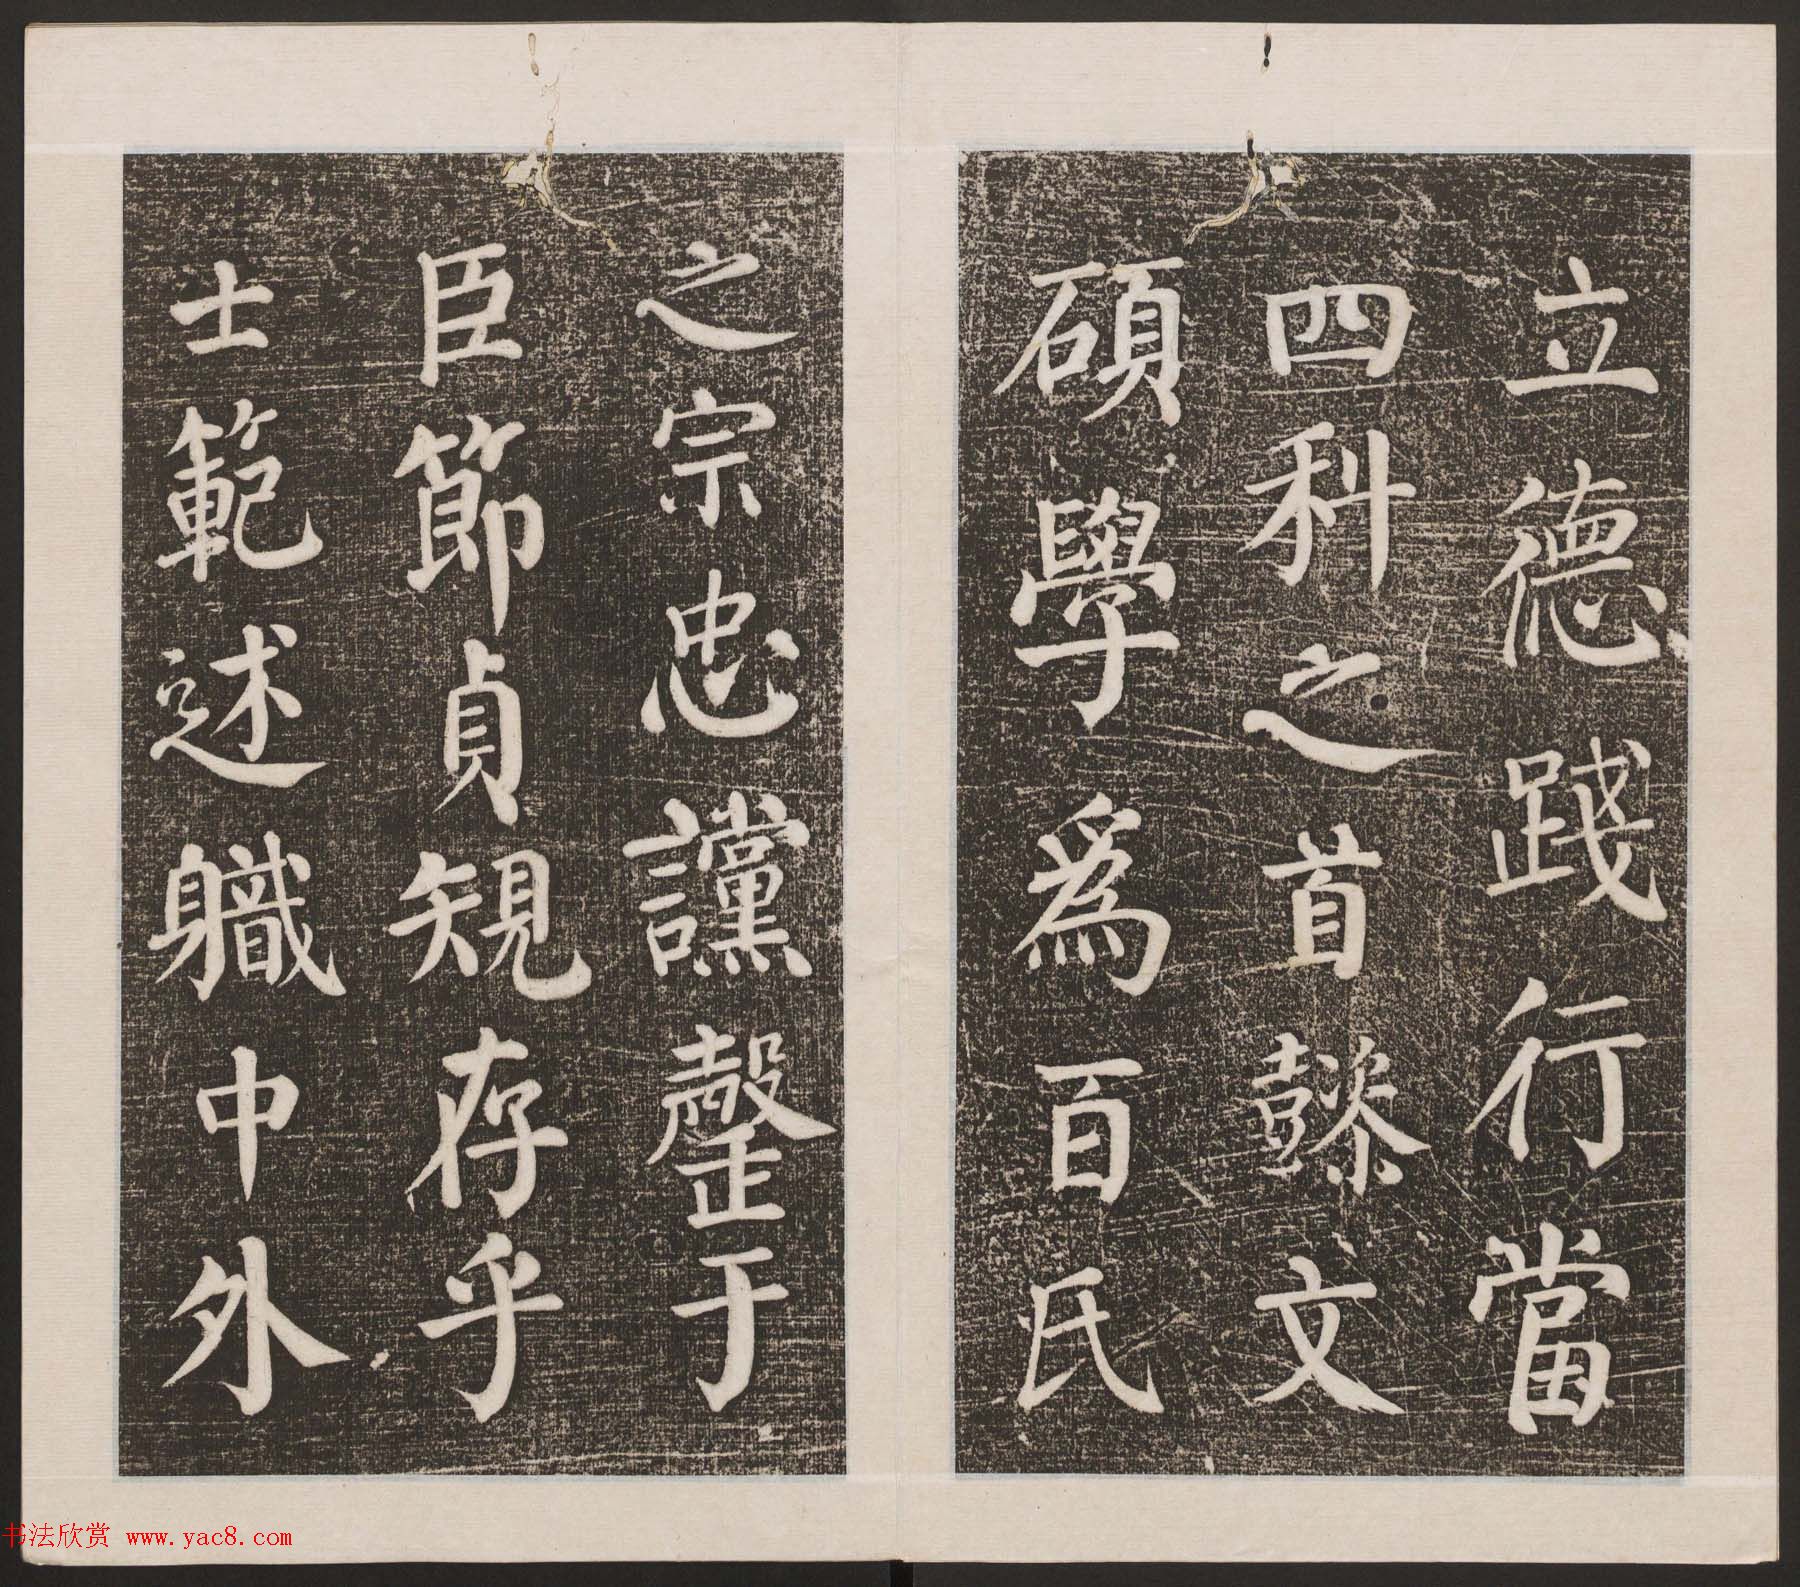 立德踐行當
四科之首懿文
碩學為百氏
之宗忠讜罄于
臣節貞規存乎
士範述職中外
书法欣赏 www.yac8.com